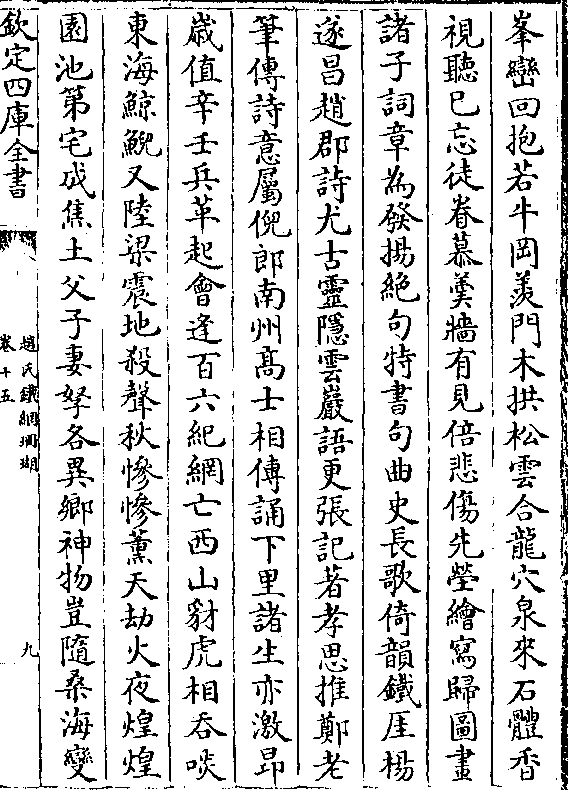 峯巒回抱若牛岡羨門木拱松雲合龍穴泉來石體香
視聽已忘徒眷慕羹牆有見倍悲傷先塋繪寫歸圖畫
諸子詞章為發揚絶句特書句曲史長歌倚韻鐵厓楊
遂昌趙郡詩尤古靈隱雲巖語更張記著孝思推鄭老
筆傳詩意屬倪郎南州髙士相傳誦下里諸生亦激昂
歳值辛壬兵革起會逢百六紀網亡西山豺虎相吞啖
東海鯨鯢又陸梁震地殺聲秋慘慘薫天劫火夜煌煌
園池第宅成焦土父子妻孥各異鄉神物豈隨桑海變
欽定四庫全書
趙氏鐵網珊瑚
卷十五
九